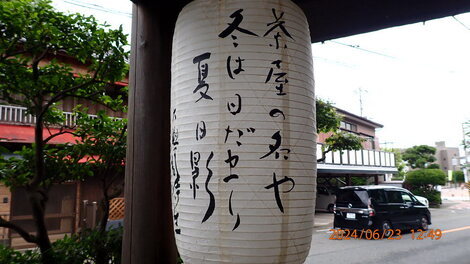 茶屋の名や
冬は日だまり
夏日影
2024/06/23 12:49